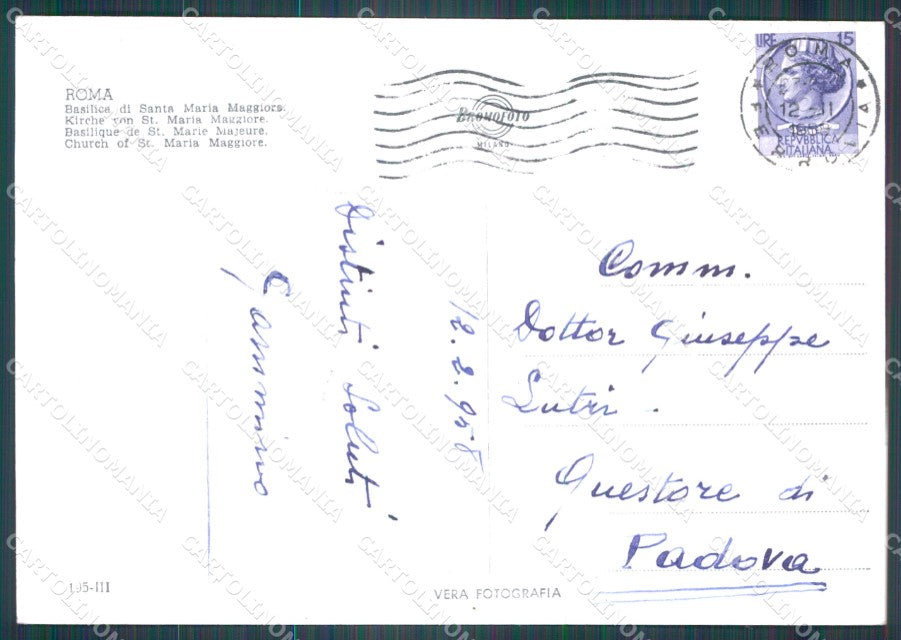 ROMA
Basilica di Santa Maria Maggiore.
Kirche von St. Maria Maggiore.
Basilique de St. Marie Majeure.
Church of St. Maria Maggiore.
MILANO
LIRE 15
ROMA
12 II
REPVBBLICA
ITALIANA
12.2.958
Distinti Saluti
Comm.
Dottor Giuseppe
Lutri.
Questore di
Padova
195-III
VERA FOTOGRAFIA
CARTOLINOMANIA